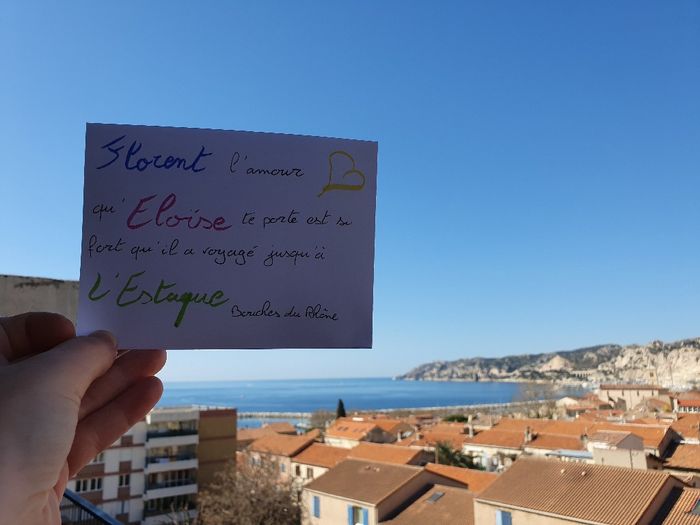 Florent l'amour
qu'Eloïse te porte est si
fort qu'il a voyagé jusqu'à
L'Estaque Bouches du Rhône